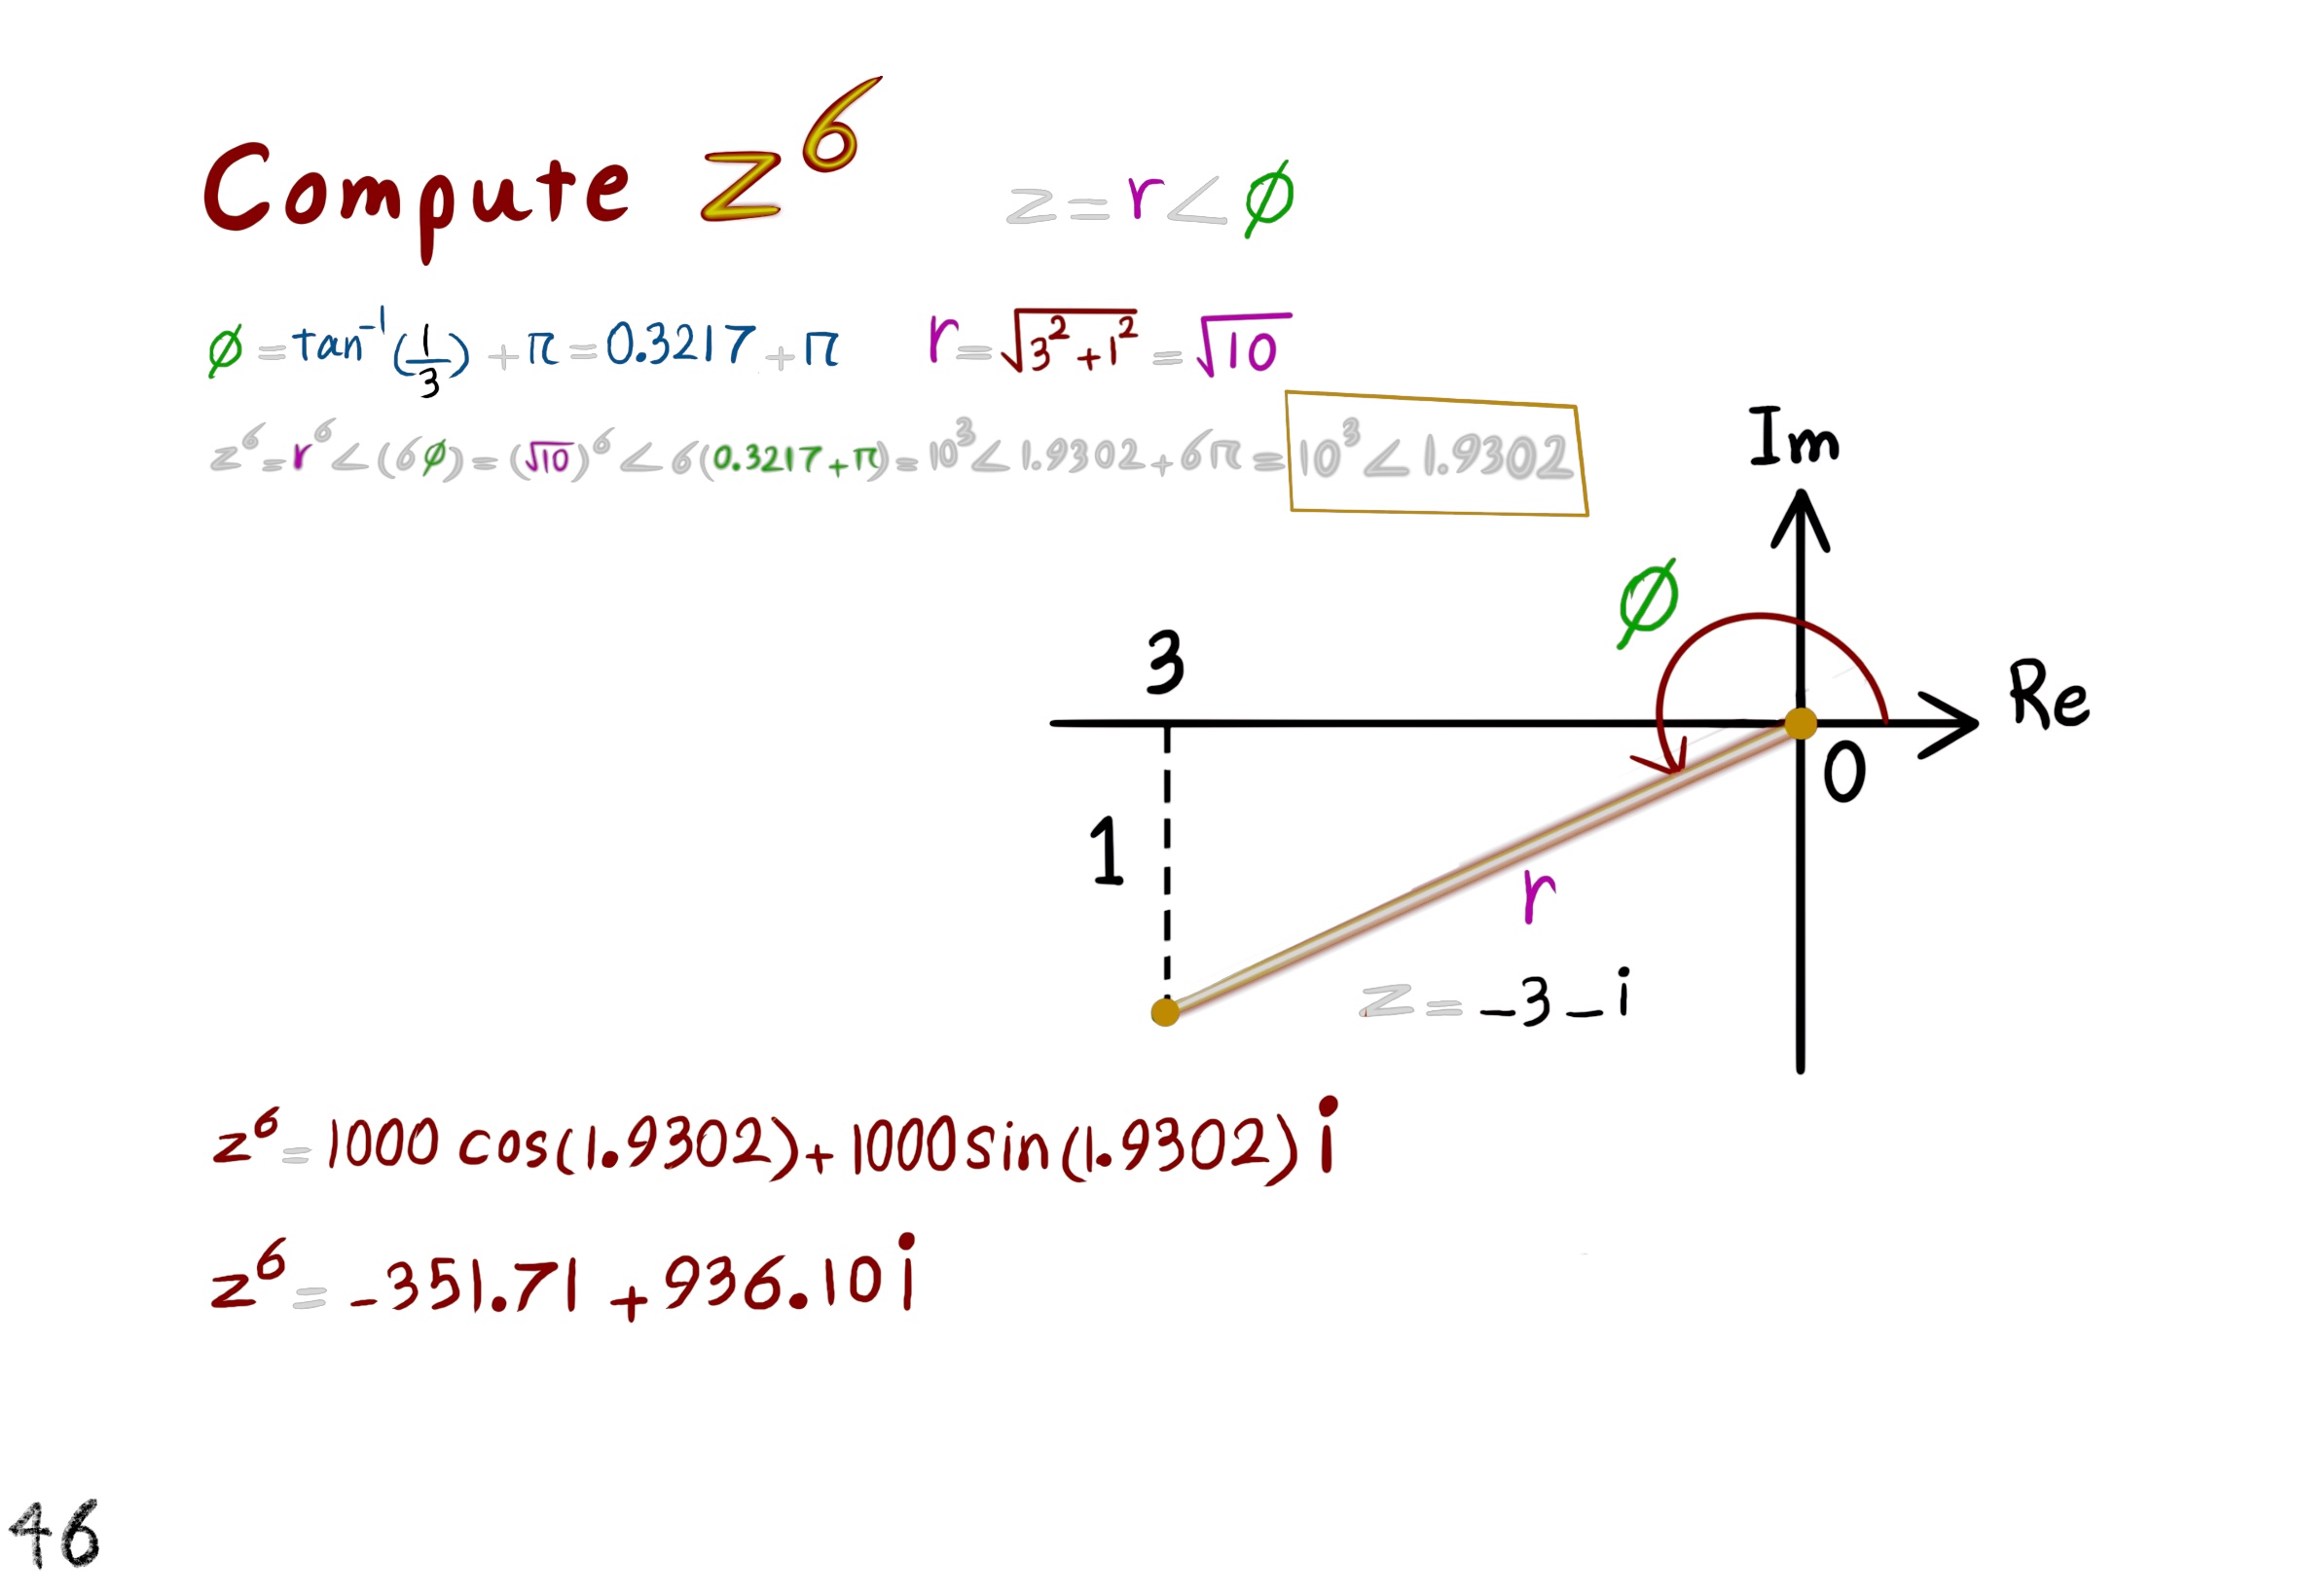 Compute z⁶ z = r∠ø
ø = tan⁻¹(1/3) + π = 0.3217 + π r = √(3² + 1²) = √10
z⁶ = r⁶∠(6ø) = (√10)⁶∠6(0.3217 + π) = 10³∠1.9302 + 6π = 10³∠1.9302
Im
ø
3
Re
0
1
r
z = -3 - i
z⁶ = 1000 cos(1.9302) + 1000 sin(1.9302) i
z⁶ = -351.71 + 936.10 i
46